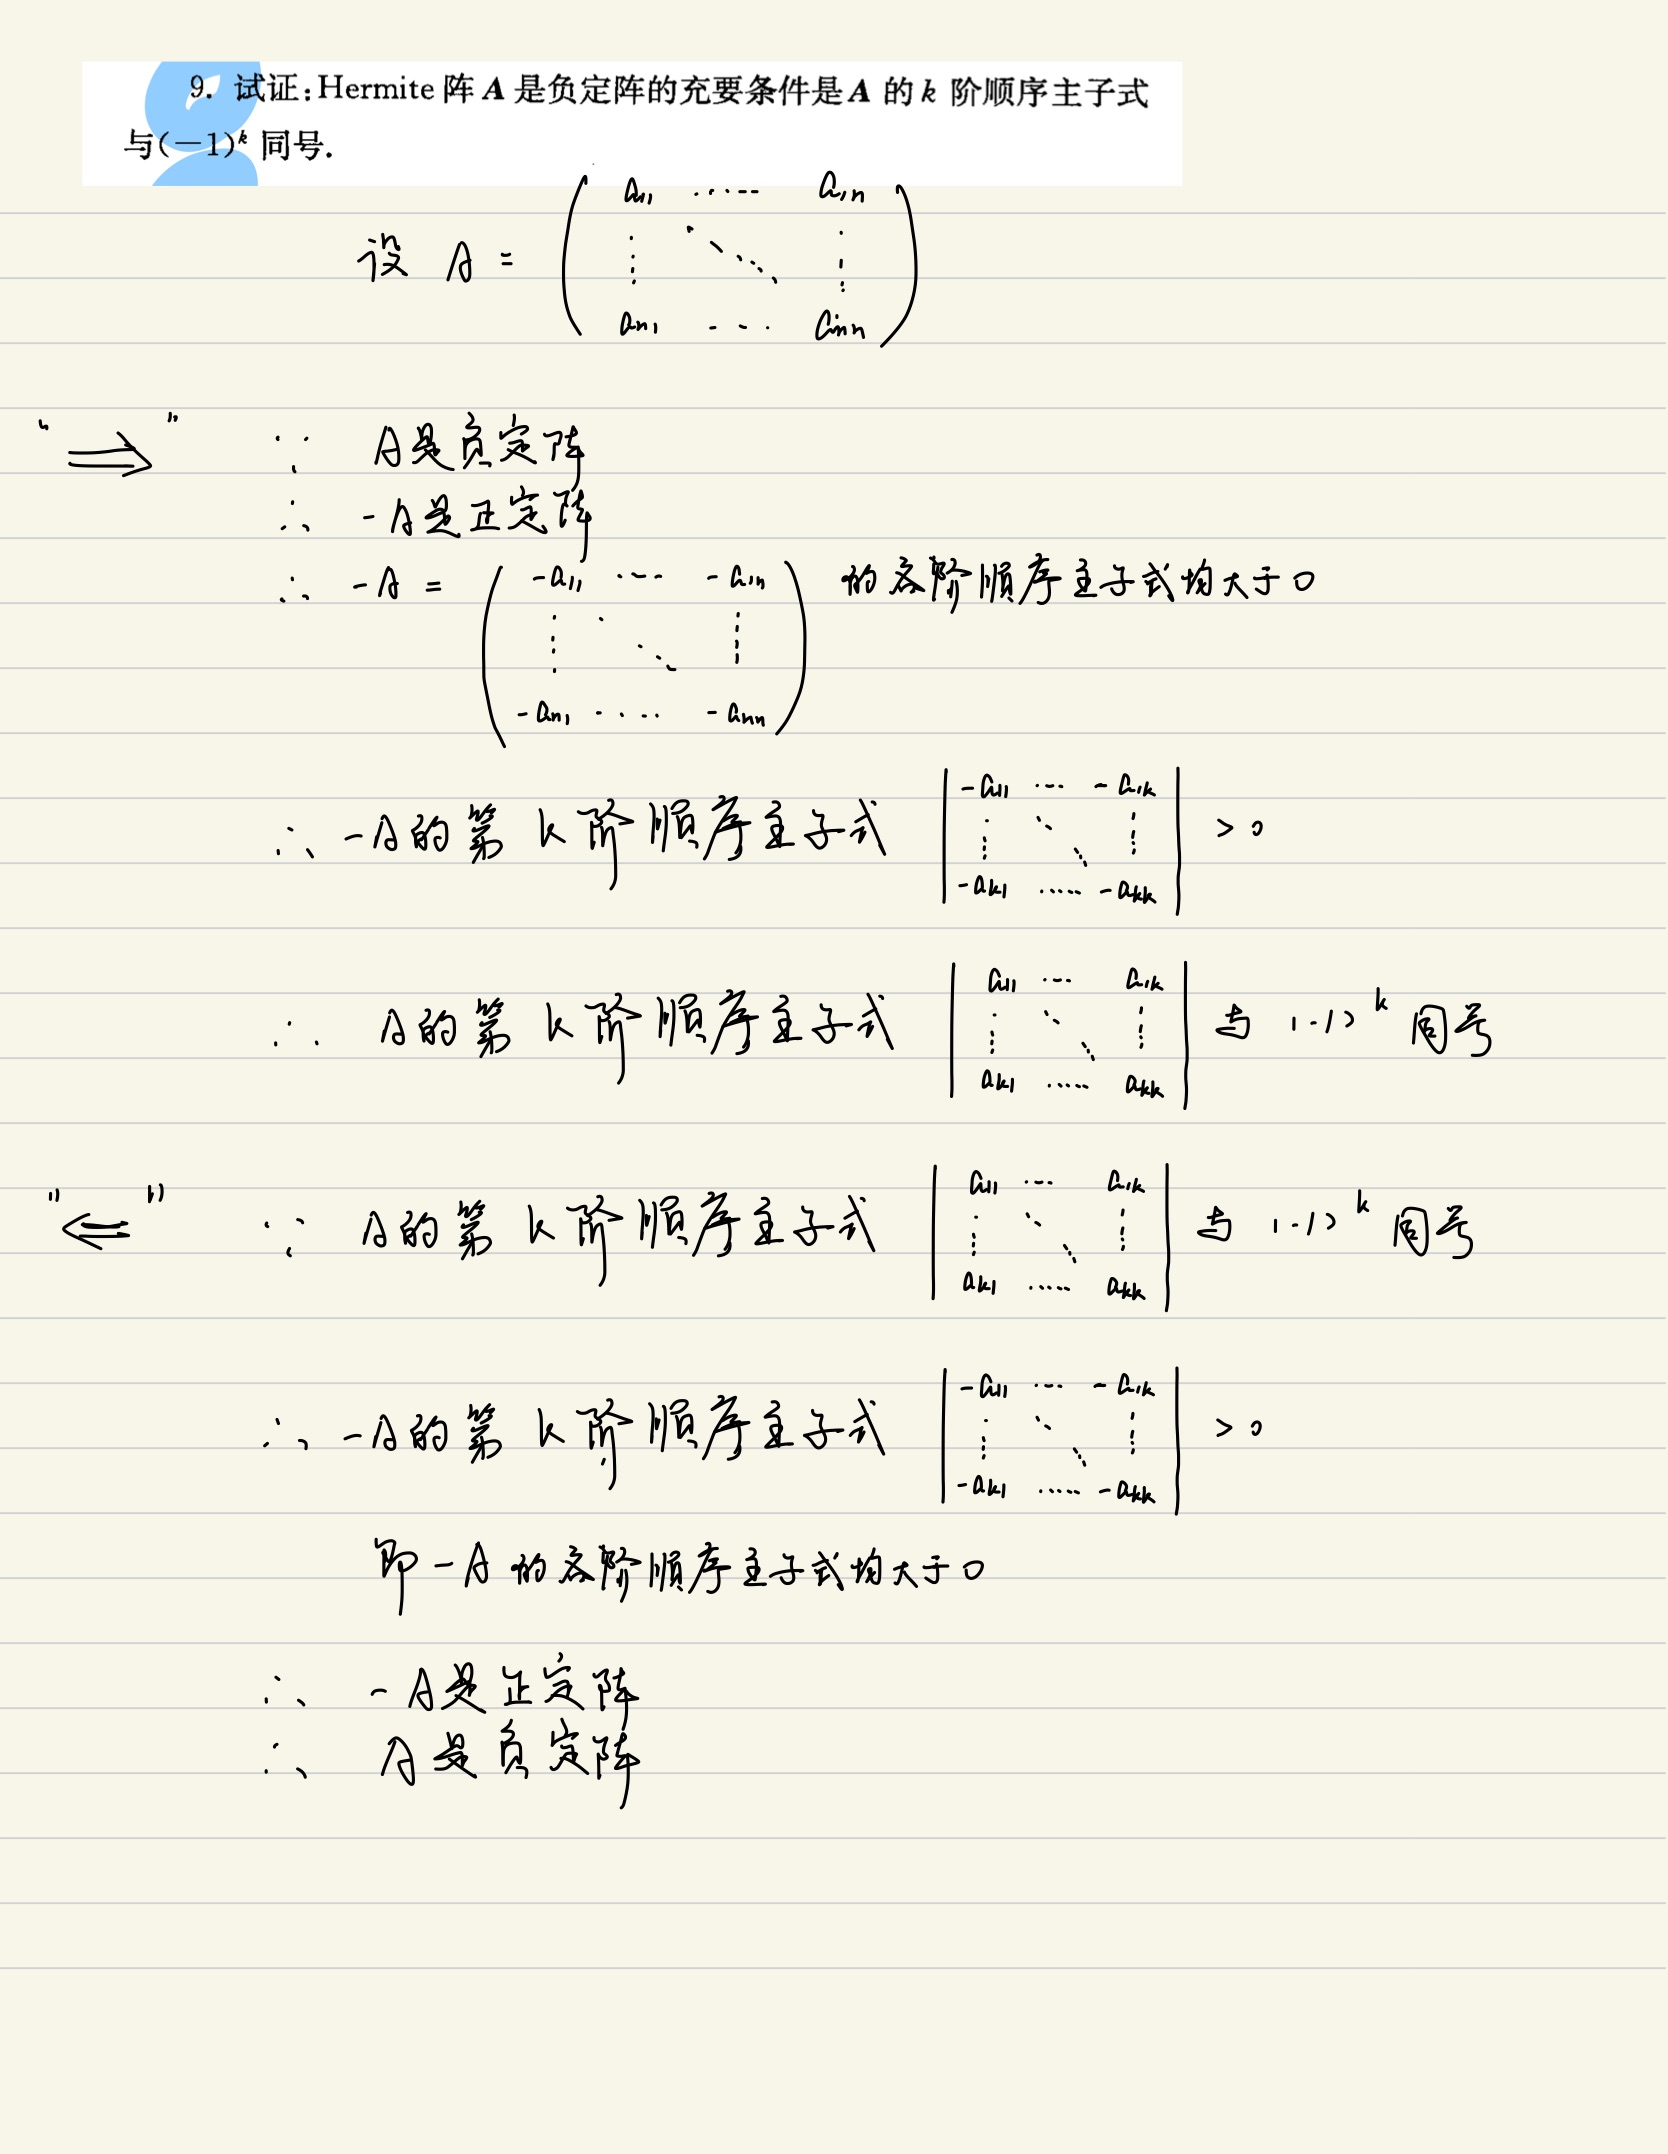 9. 试证:Hermite 阵 A 是负定阵的充要条件是 A 的 k 阶顺序主子式
与(-1)^k 同号.
设 A = ( a11 ...... a1n
⋮ ⋱ ⋮
an1 ... ann )
"⟹" ∵ A是负定阵
∴ -A是正定阵
∴ -A = ( -a11 .... -a1n
⋮ ⋱ ⋮
-an1 ..... -ann ) 的各阶顺序主子式均大于0
∴ -A的第 k 阶顺序主子式 | -a11 ... -a1k
⋮ ⋱ ⋮
-ak1 ..... -akk | > 0
∴ A的第 k 阶顺序主子式 | a11 ... a1k
⋮ ⋱ ⋮
ak1 ..... akk | 与 (-1)^k 同号
"⟸" ∵ A的第 k 阶顺序主子式 | a11 ... a1k
⋮ ⋱ ⋮
ak1 ..... akk | 与 (-1)^k 同号
∴ -A的第 k 阶顺序主子式 | -a11 ... -a1k
⋮ ⋱ ⋮
-ak1 ..... -akk | > 0
即 -A 的各阶顺序主子式均大于0
∴ -A是正定阵
∴ A是负定阵